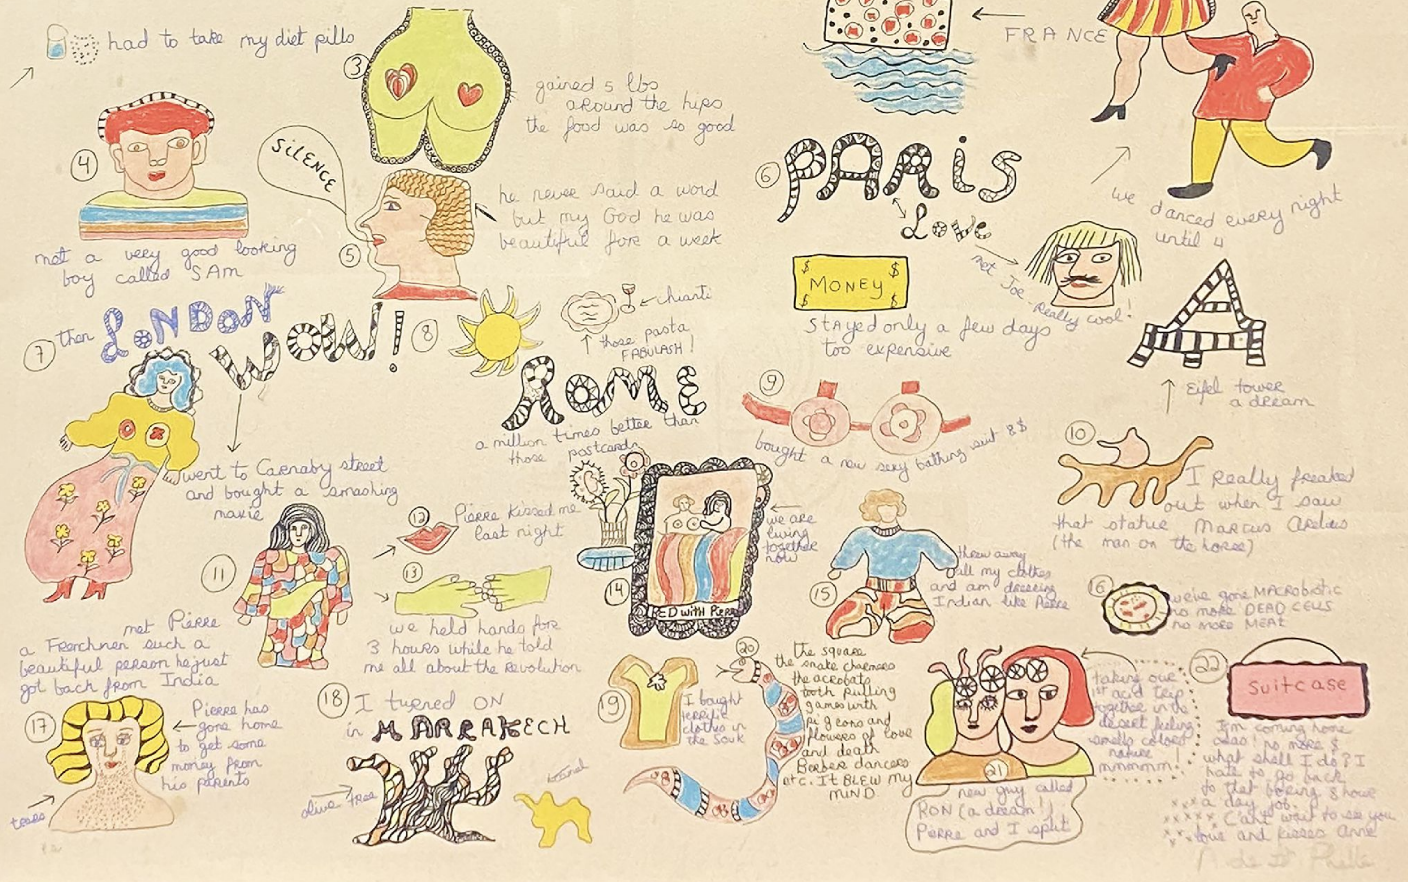 had to take my diet pills
3
gained 5 lbs
around the hips
the food was so good
FRANCE
we danced every night
until 4
4
not a very good looking
boy called SAm
SiLENCE
5
he never said a word
but my God he was
beautiful fore a week
6
PARiS
Love
met Joe - Really cool!
MONEY
$ $ $ $
Stayed only a few days
too expensive
A
Eifel tower
a dream
7
then LONDON
WOW!
went to Carnaby street
and bought a smashing
maxie
8
chianti
those pasta
FABULASH!
ROME
a million times better than
those postcards
9
bought a new sexy bathing suit 8$
10
I Really freaked
out when I saw
that statue Marcus Orelius
(the man on the horse)
11
met Pierre
a Frenchmen such a
beautiful person he just
got back from India
12
Pierre Kissed me
last night
13
we held hands for
3 hours while he told
me all about the revolution
14
we are
living
together
now
ED WITH PIERRE
15
threw away
all my clothes
and am dressing
Indian like Pierre
16
we've gone MACROBIOTIC
no more DEAD CELLS
no more MEAT
17
Pierre has
gone home
to get some
money from
his parents
tears
18
I turned ON
in MARRAKECH
olive tree
19
I bought
terrific
clothes in
the Souk
20
the square
the snake charmers
the acrobats
tooth pulling
games with
pigeons and
flowers of love
and death
Berber dancers
etc. It BLEW my
MIND
21
taking our
1st acid trip
together in the
desert feeling
smells colors
nature
mmmmm
new guy called
RON (a dream!)
Pierre and I split
22
suitcase
I'm coming home
alas! no more $
what shall I do? I
hate to go back
to that boring 8 hour
xxx a day job.
xxxxx Can't wait to see you
xx love and kisses Anne